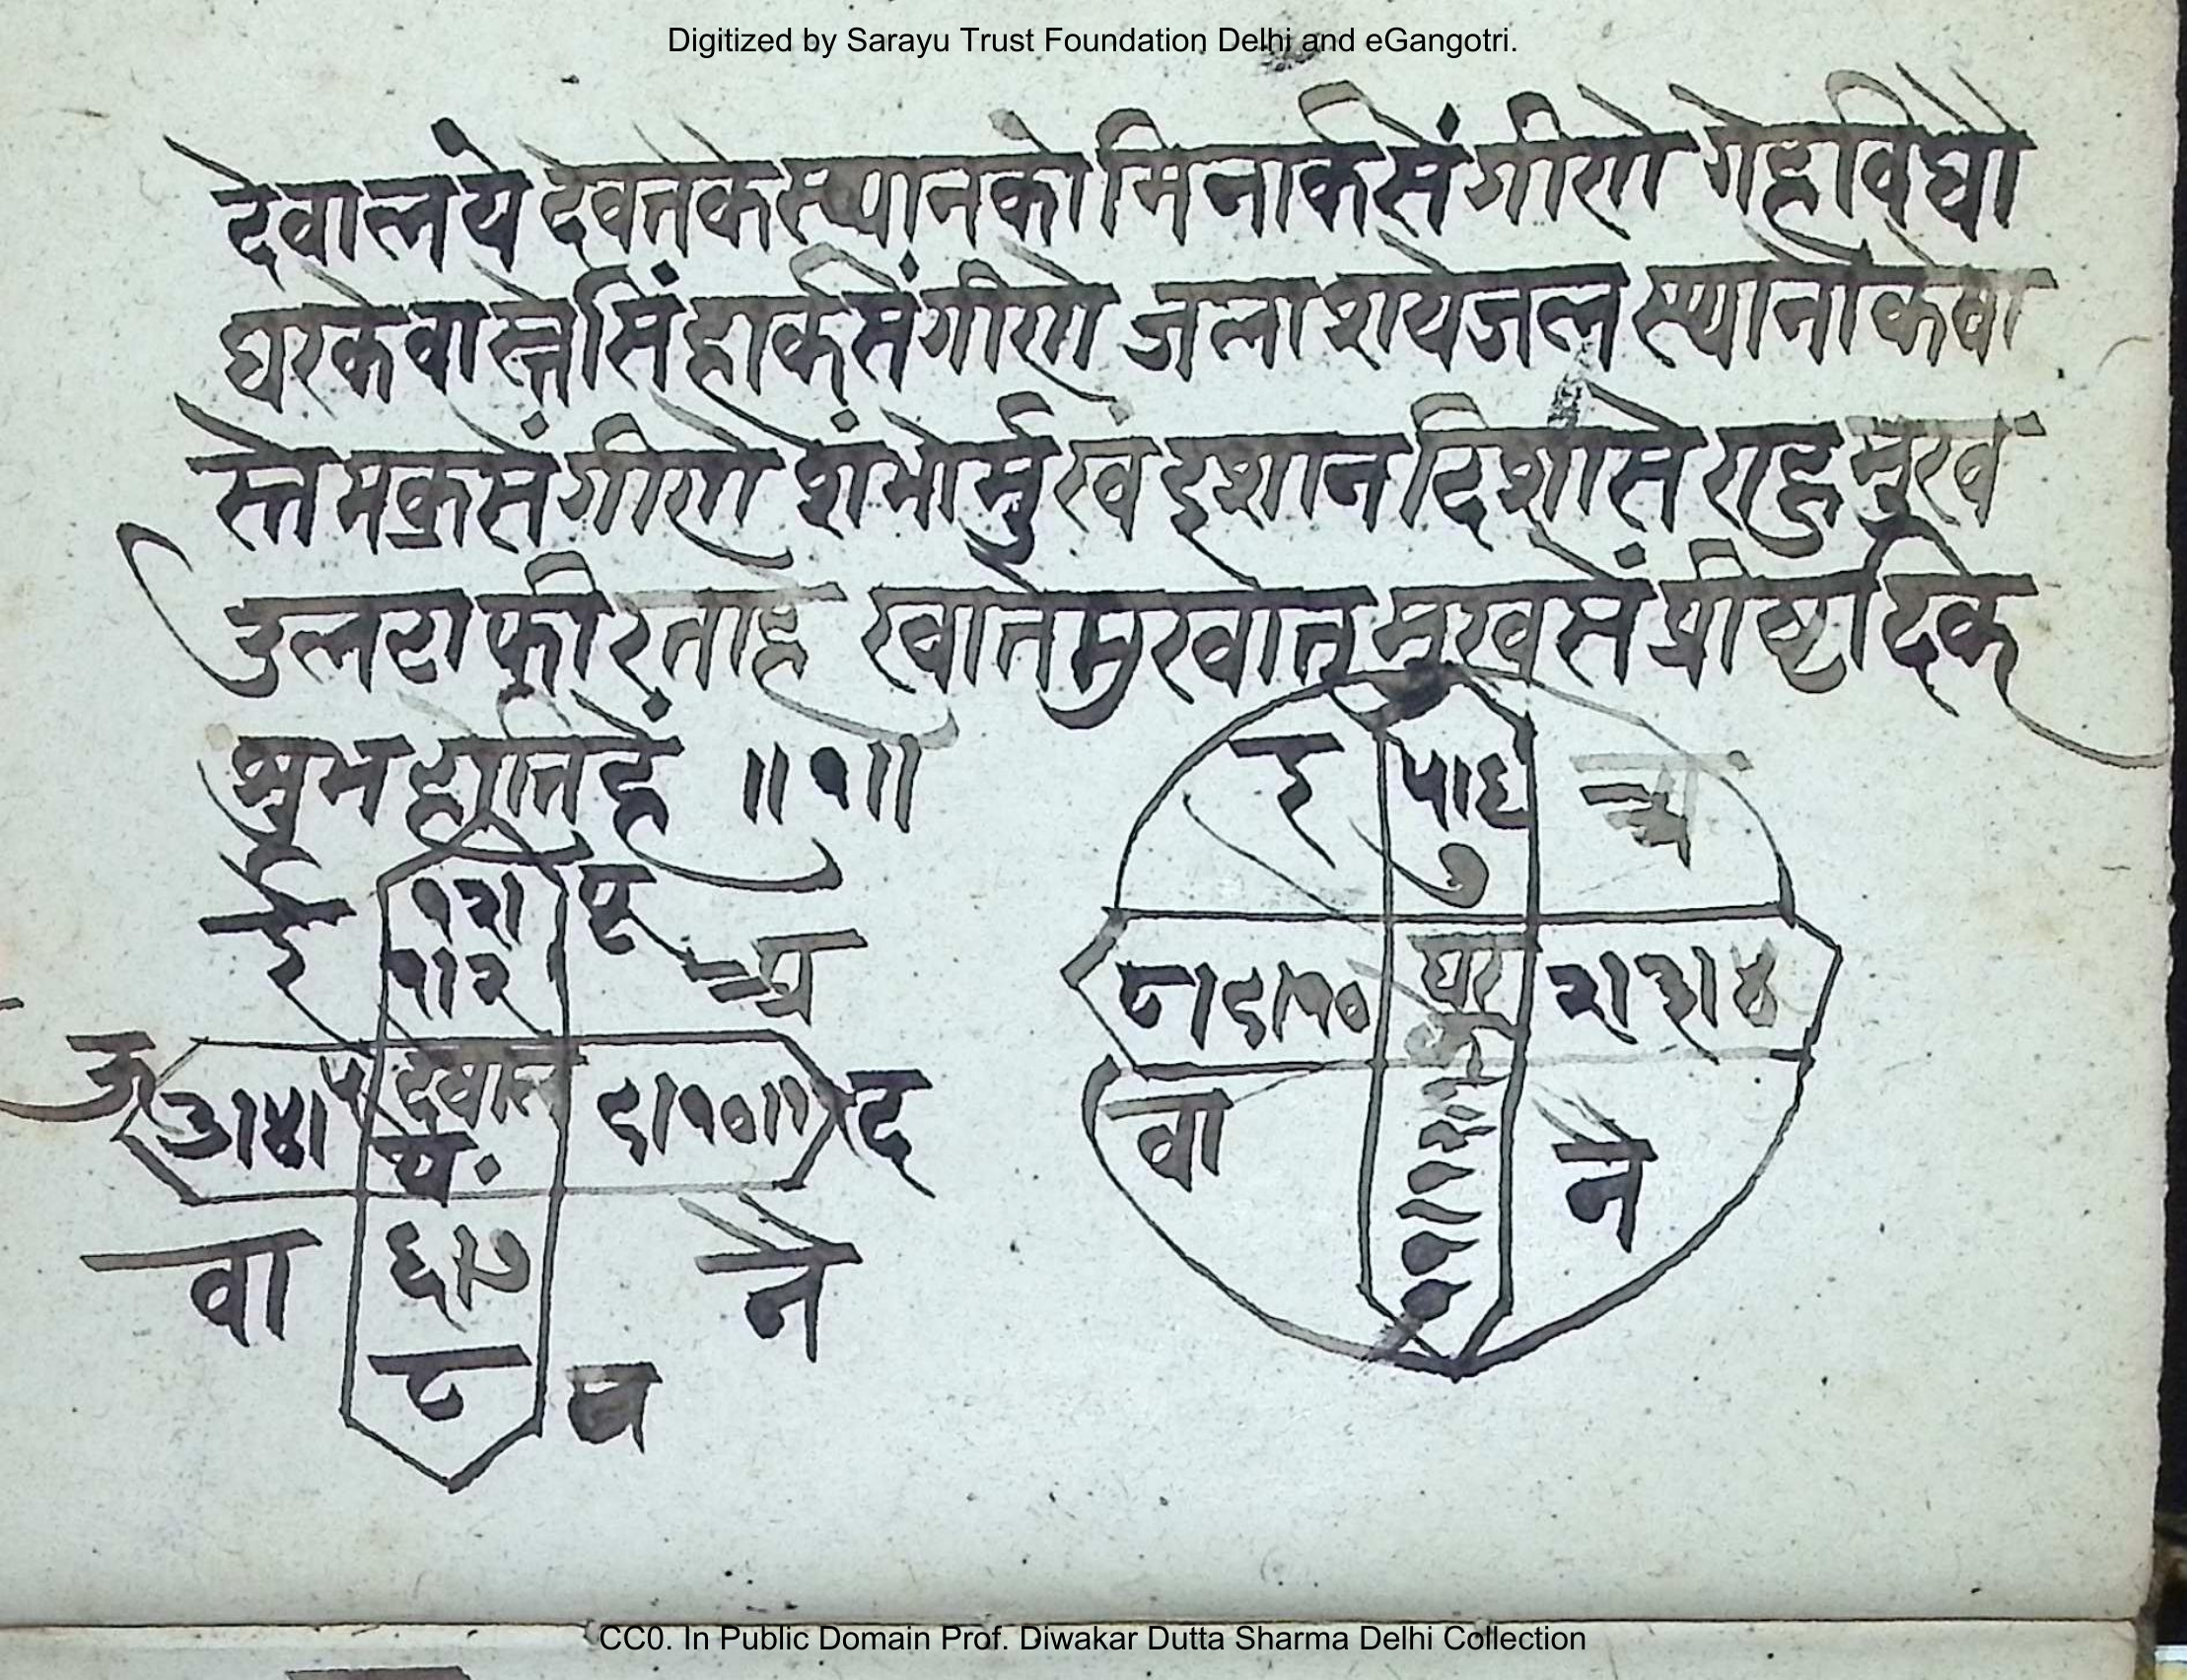 Digitized by Sarayu Trust Foundation Delhi and eGangotri.
देवालये देवतेके स्थानको मिनार्कसें गीणो गेहविधौ
घरके वास्ते सिंहार्कसें गीणो जलाशये जल स्थानोके वा
स्ते मक्रसें गीणो शंभोर्मुखं इशान दिशासे राहु मुख
उलटा फीरताहै खाते मुखात् मुखसें प्रीष्ट दिक
शुभ होति हें ॥१॥
ई १२। पू अ
१।२
उ ३।४।५ देवाल ९।१०।११ द
यं.
वा ६।७ नै
८ प
इ ५।६ अ
७
८।९।१० घर २।३।४
वा नै
CC0. In Public Domain Prof. Diwakar Dutta Sharma Delhi Collection